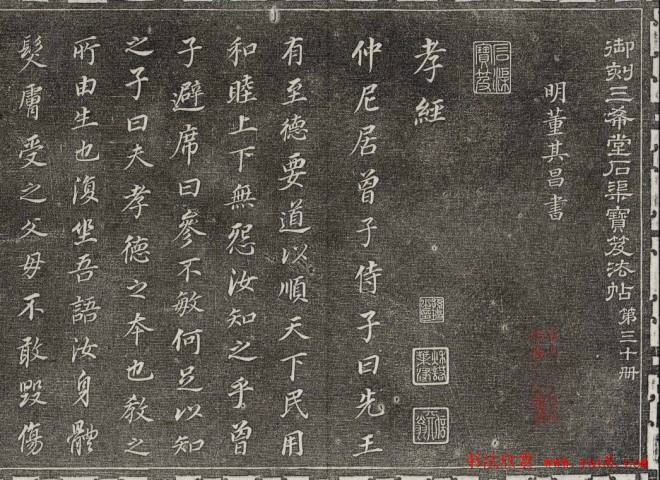 御刻三希堂石渠寶笈法帖 第三十册
明董其昌書
石渠寶笈
孝經
仲尼居曾子侍子曰先王
有至德要道以順天下民用
和睦上下無怨汝知之乎曾
子避席曰參不敏何足以知
之子曰夫孝德之本也教之
所由生也復坐吾語汝身體
髮膚受之父母不敢毀傷
书法欣赏